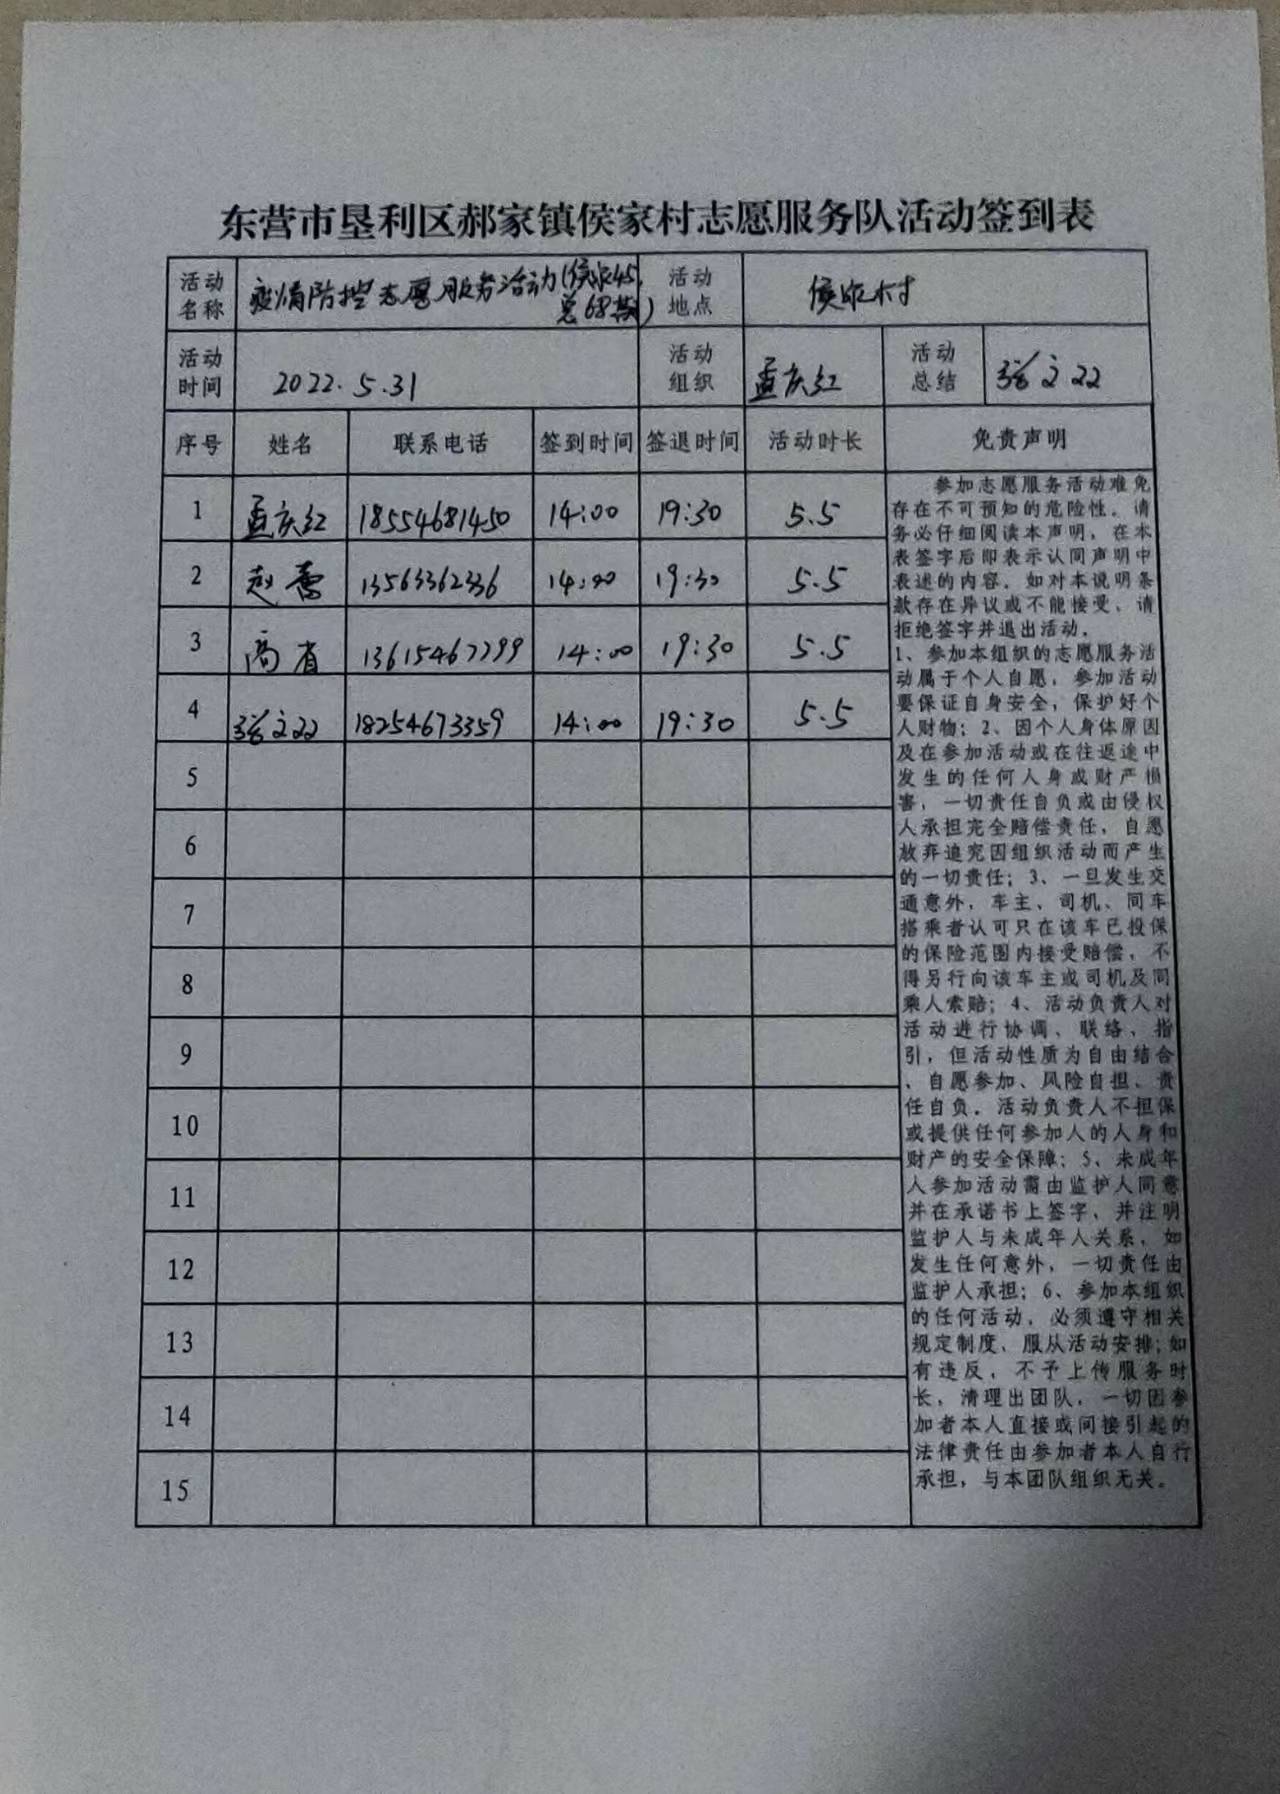 东营市垦利区郝家镇侯家村志愿服务队活动签到表
活动名称 疫情防控志愿服务活动(侯家45,总68期) 活动地点 侯家村
活动时间 2022.5.31 活动组织 孟庆红 活动总结
序号 姓名 联系电话 签到时间 签退时间 活动时长 免责声明
1 孟庆红 18554681450 14:00 19:30 5.5
2 赵 13563362336 14:00 19:30 5.5
3 高省 13615467799 14:00 19:30 5.5
4 18254673359 14:00 19:30 5.5
5
6
7
8
9
10
11
12
13
14
15
参加志愿服务活动难免
存在不可预知的危险性。请
务必仔细阅读本声明，在本
表签字后即表示认同声明中
表述的内容。如对本说明条
款存在异议或不能接受，请
拒绝签字并退出活动。
1、参加本组织的志愿服务活
动属于个人自愿，参加活动
要保证自身安全，保护好个
人财物；2、因个人身体原因
及在参加活动或在往返途中
发生的任何人身或财产损
害，一切责任自负或由侵权
人承担完全赔偿责任，自愿
放弃追究因组织活动而产生
的一切责任；3、一旦发生交
通意外，车主、司机、同车
搭乘者认可只在该车已投保
的保险范围内接受赔偿，不
得另行向该车主或司机及同
乘人索赔；4、活动负责人对
活动进行协调、联络、指
引，但活动性质为自由结合
、自愿参加、风险自担、责
任自负。活动负责人不担保
或提供任何参加人的人身和
财产的安全保障；5、未成年
人参加活动需由监护人同意
并在承诺书上签字，并注明
监护人与未成年人关系，如
发生任何意外，一切责任由
监护人承担；6、参加本组织
的任何活动，必须遵守相关
规定制度、服从活动安排；如
有违反，不予上传服务时
长，清理出团队，一切因参
加者本人直接或间接引起的
法律责任由参加者本人自行
承担，与本团队组织无关。